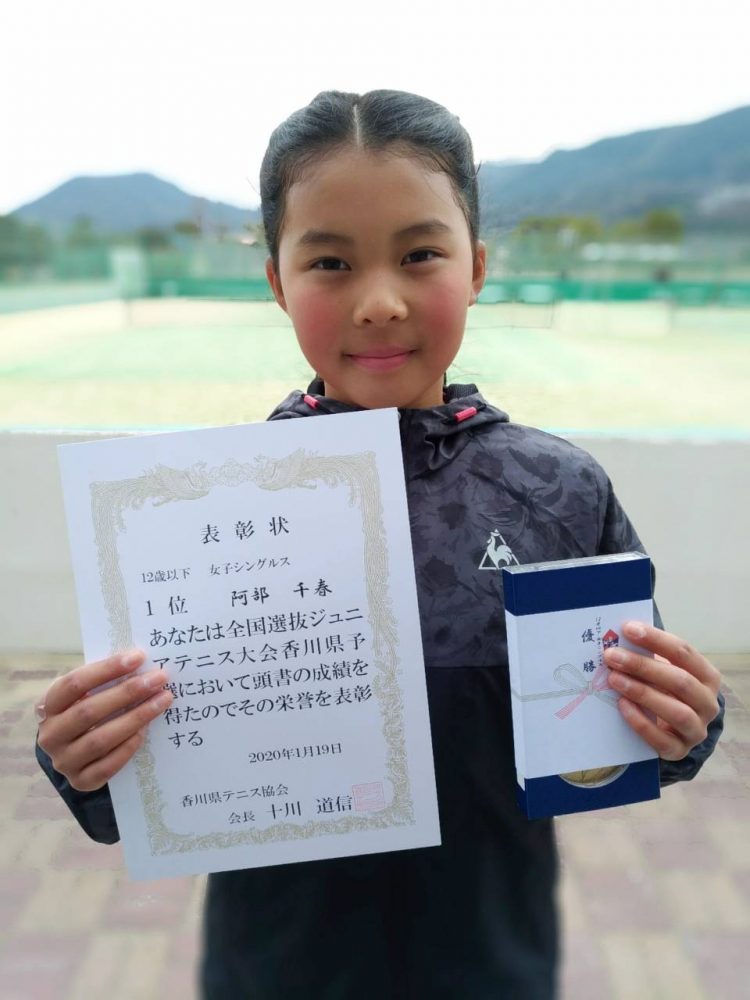 表彰状
12歳以下 女子シングルス
1位 阿部 千春
あなたは全国選抜ジュニ
アテニス大会香川県予
選において頭書の成績を
得たのでその栄誉を表彰
する
2020年1月19日
香川県テニス協会
会長 十川 道信
優勝